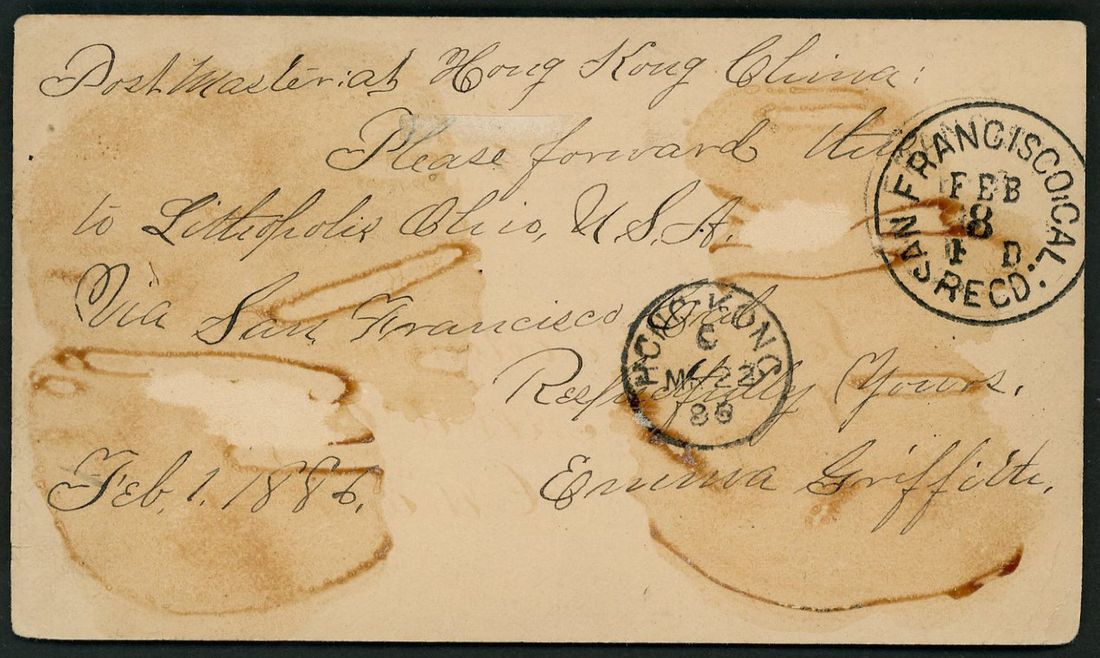 Post Master: at Hong Kong China:
Please forward this
to Lithopolis Ohio, U.S.A.
Via San Francisco, Cal.
Respectfully Yours,
Feb. 1. 1886. Emma Griffith.
SAN FRANCISCO, CAL.
FEB
8
D
RECD.
HONG KONG
C
22
86